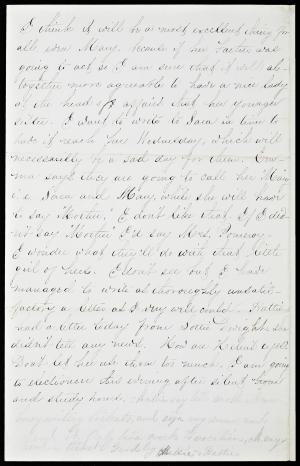 I think it will be a most excellent thing for
all, even Mary, because if her Father was
going to act so I am sure that it will al-
together more agreeable to have a nice lady
at the head of affairs that her younger
sister. I want to write to Sara in time to
have it reach her Wednesday, which will
necessarily be a sad day for them. Em-
ma says they are going to call her "Mary"
i.e. Sara and Mary, while she will have
to say Mother. I don't like that. If I did-
n't say "Mother" I'd say Mrs. Pomeroy.
I wonder what they'll do with that little
girl of hers. I don't see but I have
managed to write as thoroughly unsatis-
factory a letter as I very well could. Hattie
had a letter today from Dottie Enright she
didn't tell any news. How are Kittie's eyes?
Don't let her use them too much. I am going
to elocution this evening after silent hour
and study hour.